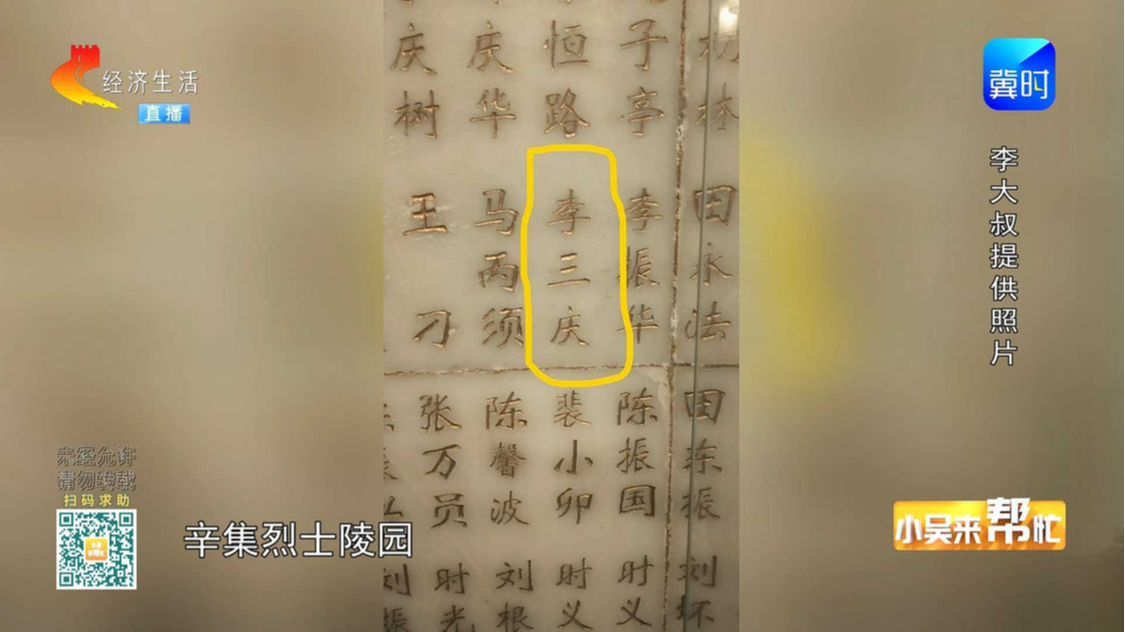 经济生活
直播
冀时
李大叔提供照片
庆树
庆华
恒路
子亭
林
王 刁
马丙须
李三庆
李振华
田永法
张万员
陈馨波
裴小卯
陈振国
田东振
刘振
时光
刘根
时义
时义
刘怀
未经允许
请勿转载
扫码求助
辛集烈士陵园
小吴来帮忙